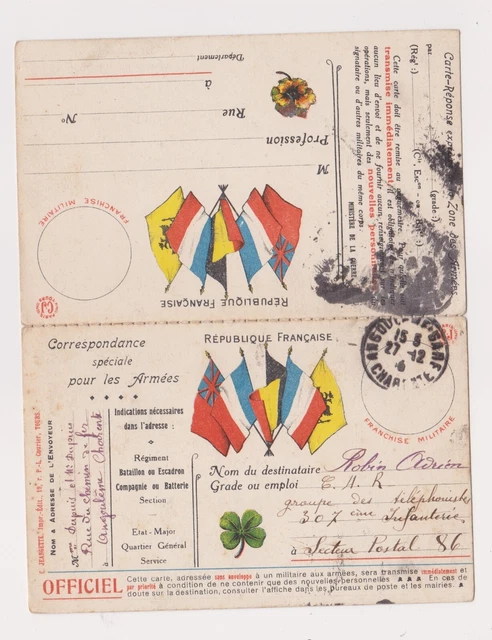 Carte-Réponse
par
(Rég¹ :)
Cette carte doit être remise au
transmise immédiatement
aucun lieu d'envoi et de ne fournir aucun renseignement
opérations, mais seulement des nouvelles personnelles
signataire ou d'autres militaires du même corps.
MINISTÈRE DE LA GUERRE
M
Profession
N°
Rue
à
Département
FRANCHISE MILITAIRE
RÉPUBLIQUE FRANÇAISE
Correspondance
spéciale
pour les Armées
RÉPUBLIQUE FRANÇAISE
15 5
27 -12
CHARENTE
FRANCHISE MILITAIRE
Indications nécessaires
dans l'adresse :
Régiment
Bataillon ou Escadron
Compagnie ou Batterie
Section
État-Major
Quartier Général
Service
NOM & ADRESSE DE L'ENVOYEUR
Mme Dupuis
Rue du chemin de fer
Angoulême Charente
Nom du destinataire Robin Adrien
Grade ou emploi C. M. R
groupe des téléphonistes
307 ième Infanterie
à Secteur Postal 86
OFFICIEL
Cette carte, adressée sans enveloppe à un militaire aux armées, sera transmise immédiatement et
par priorité à condition de ne contenir que des nouvelles personnelles ▲▲▲ En cas de
doute sur la destination, consulter l'affiche dans les bureaux de poste et les mairies. ▲